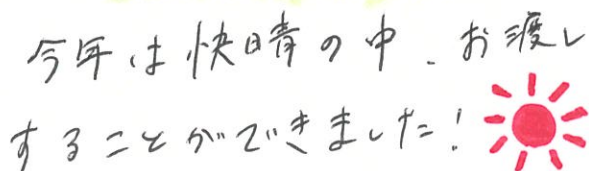 今年は快晴の中、お渡し
することができました!